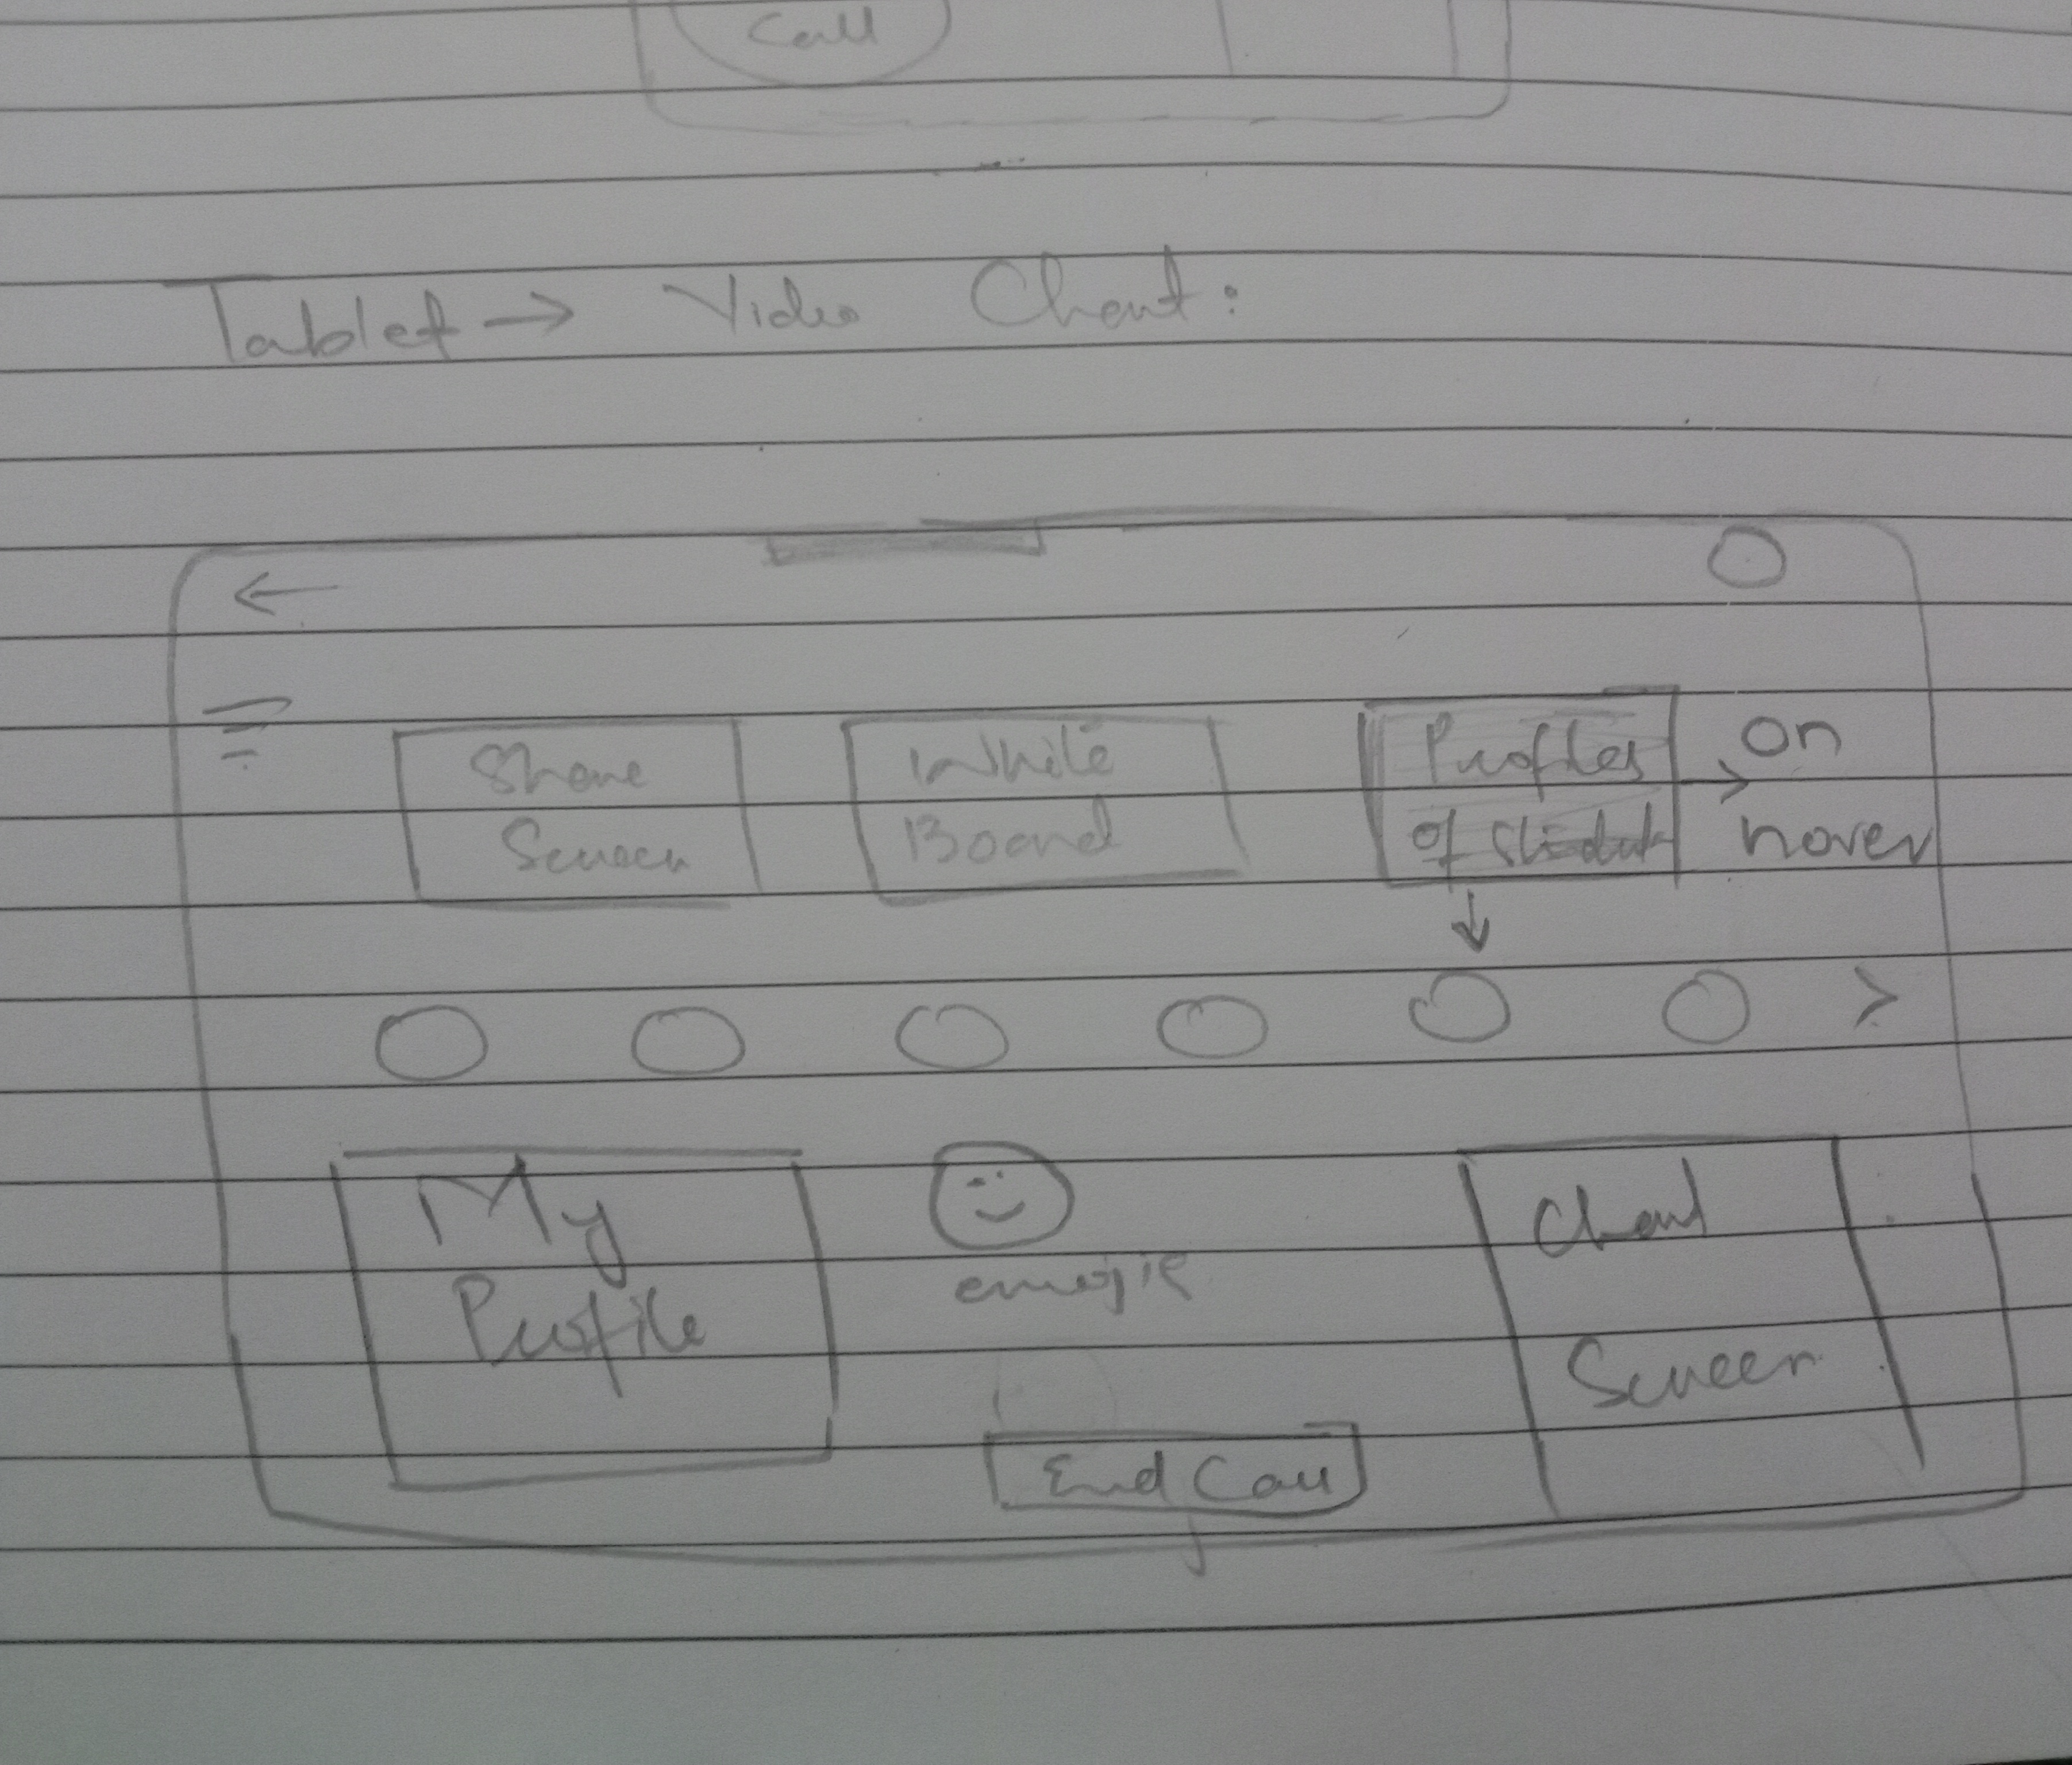 Call
Tablet → Video Chat:
Share
Screen
White
Board
Profiles
of Student
on
hover
My
Profile
emojie
End Call
Chat
Screen